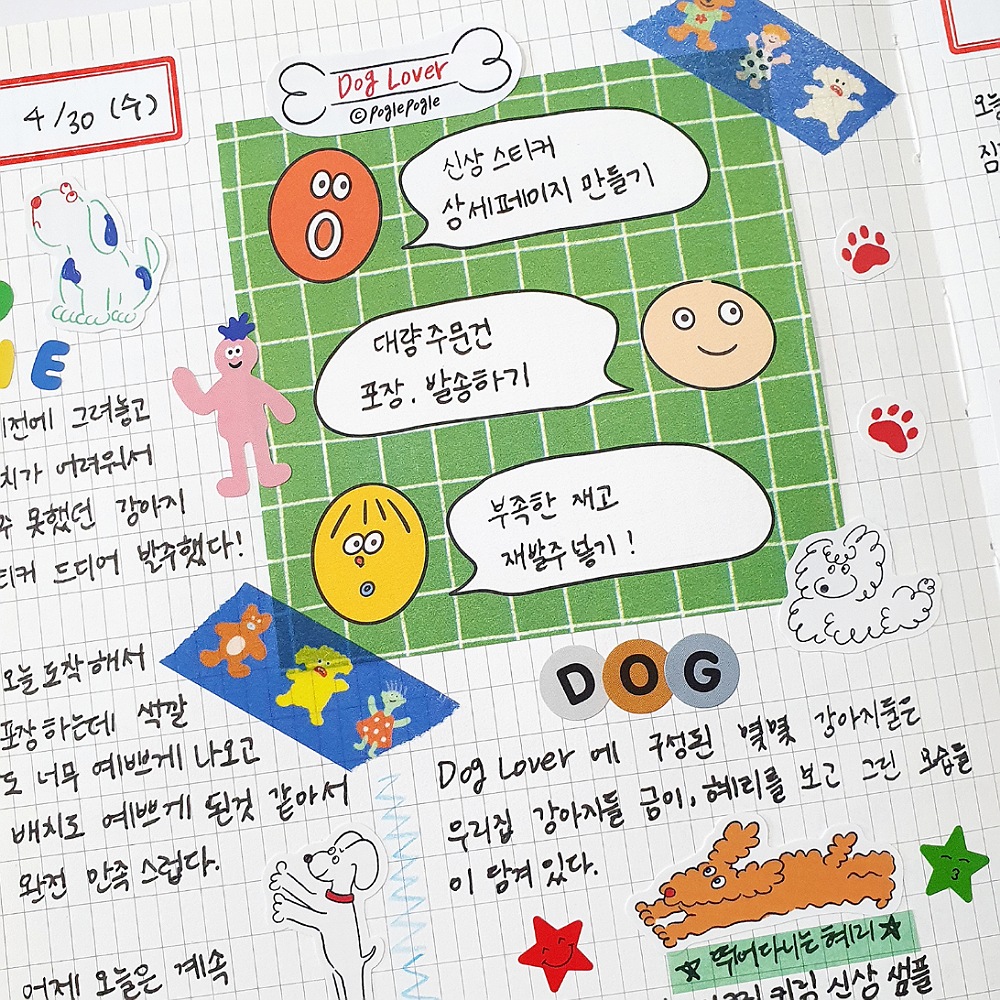 4/30 (수)
Dog Lover
©poglepogle
신상 스티커
상세페이지 만들기
대량 주문건
포장, 발송하기
부족한 재고
재발주 넣기!
E
전에 그려놓고
치가 어려워서
못했던 강아지
티커 드디어 발주했다!
오늘 도착해서
포장하는데 색깔
도 너무 예쁘게 나오고
배치도 예쁘게 된것 같아서
완전 만족스럽다.
어제 오늘은 계속
DOG
Dog Lover 에 구성된 몇몇 강아지들은
우리집 강아지들 금이, 혜리를 보고 그린 모습들
이 담겨 있다.
☆ 뛰어다니는 혜리 ☆
커팅 신상 샘플
오늘